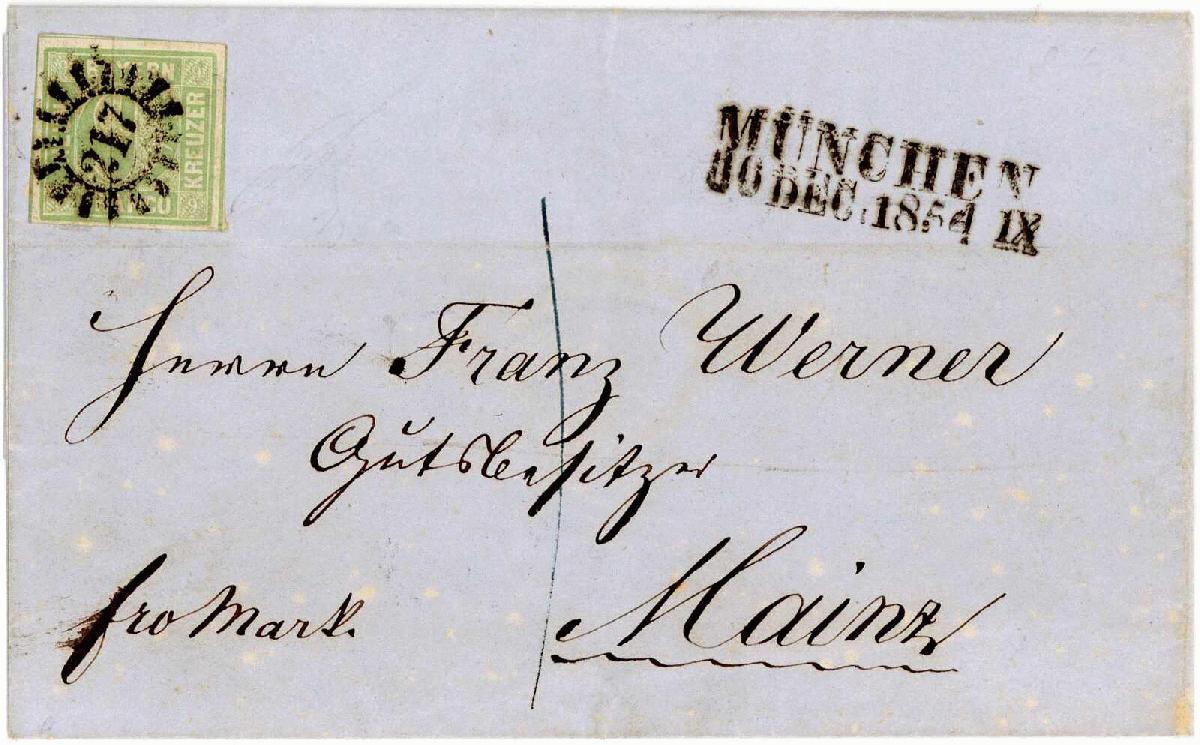 BAYERN
KREUZER
217
MÜNCHEN
10 DEC. 1854 IX
Herrn Franz Werner
Gutsbesitzer
fro Mark.
Mainz